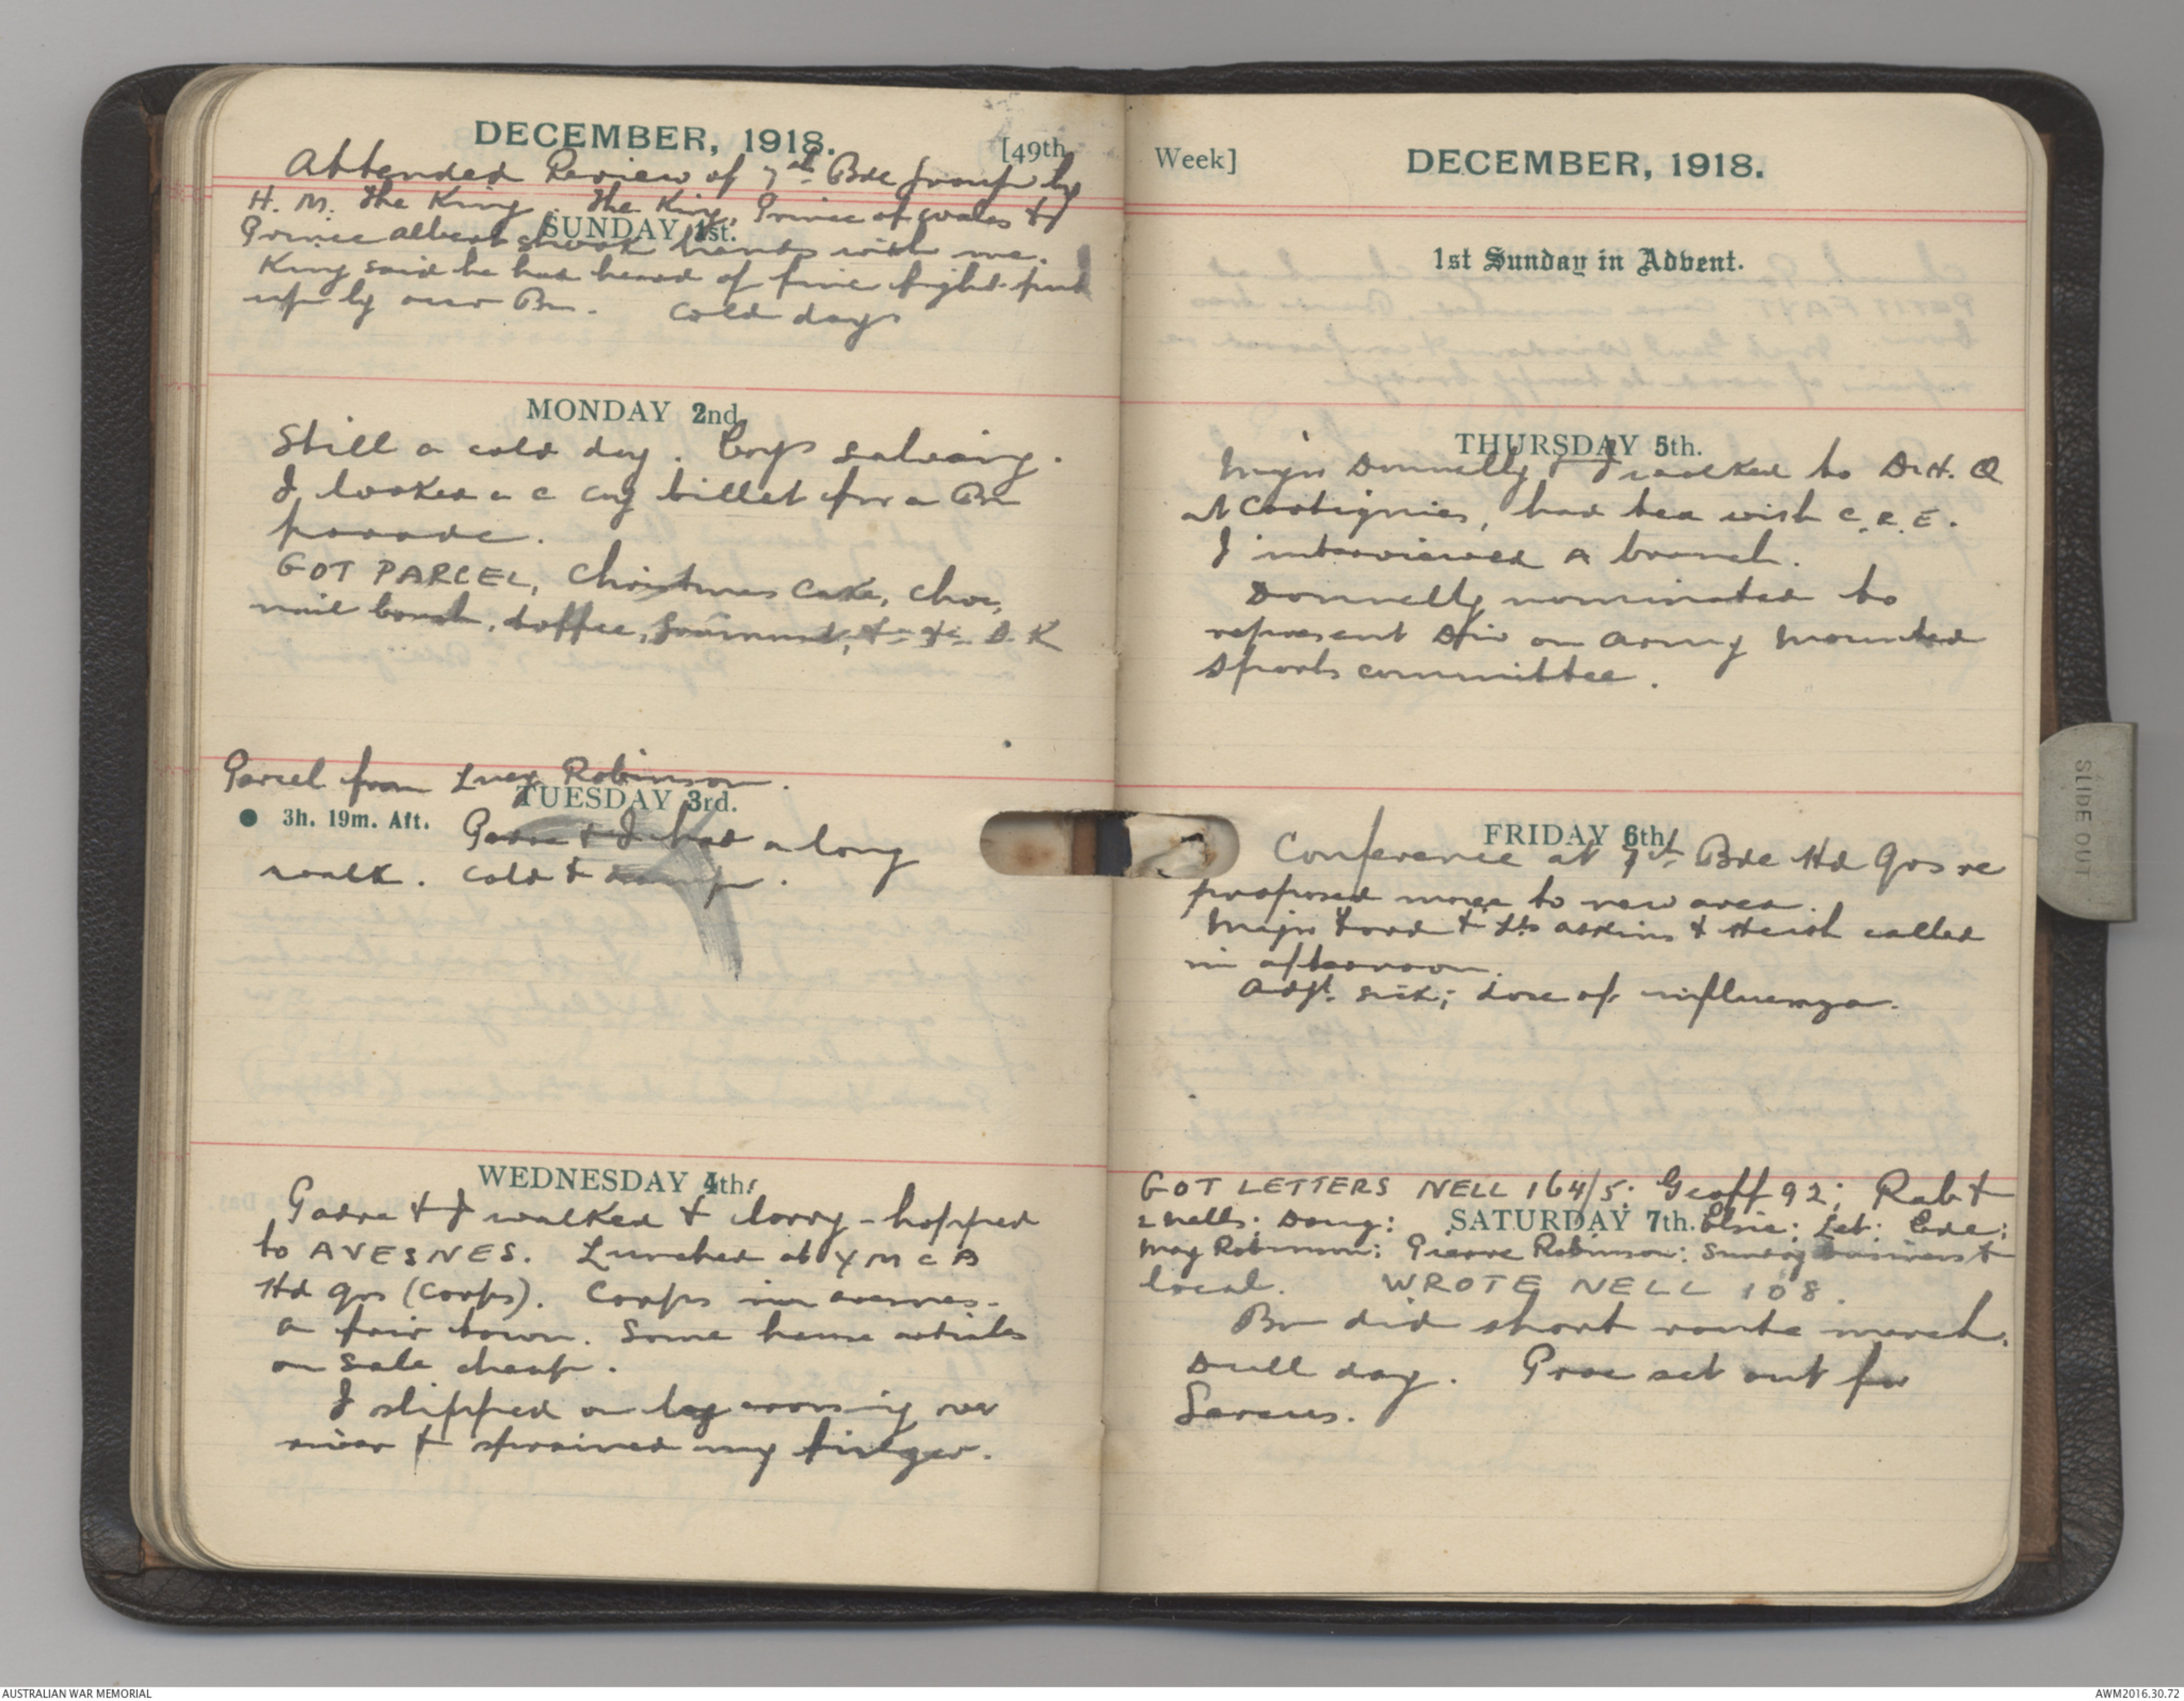 DECEMBER, 1918.
[49th
Attended Review of 7th Bde Group by
H. M. The King. The King, Prince of Wales &
SUNDAY 1st.
Prince Albert shook hands with me.
King said he had heard of fine fight put
up by our Bn. Cold day
MONDAY 2nd.
Still a cold day. Coys salving.
I looked a C Coy billet for a Bn
parade.
GOT PARCEL, Christmas Cake, choc,
toffee, &c &c. D. K
Parcel from Lucy Robinson.
TUESDAY 3rd.
● 3h. 19m. Aft.
& I had a long
walk. Cold & damp.
WEDNESDAY 4th.
& I walked & lorry-hopped
to AVESNES. Lunched at YMCA
Hd Qrs (Corps). Corps in Avesnes.
a fair town. Some articles
on sale cheap.
I slipped on log crossing
river & sprained my finger.
Week]
DECEMBER, 1918.
1st Sunday in Advent.
THURSDAY 5th.
Major Donnelly & I walked to D.H.Q
at Cartignies, had tea with C.R.E.
I interviewed A branch.
Donnelly nominated to
represent Div on Army Mounted
Sports committee.
FRIDAY 6th.
Conference at 7th Bde Hd Qrs re
proposed move to new area.
Major & Lts & called
in afternoon.
Adjt. sick; dose of influenza.
GOT LETTERS NELL 164/5: Geoff 92;
Doug: SATURDAY 7th. Elsie:
May Robinson: Robinson: Sundry business &
local. WROTE NELL 108.
Bn did short route march.
Dull day. set out for
SLIDE OUT
AUSTRALIAN WAR MEMORIAL
AWM2016.30.72